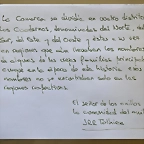 La Comarca se dividía en cuatro distritos,
las Cuadernas, denominadas del Norte, del
Sur, del Este y del Oeste y éstas a su vez
en regiones que aún llevaban los nombres
de algunas de las viejas familias principales
aunque en la época de esta historia esos
nombres no se encontraban sólo en las
regiones respectivas.
El señor de los anillos
la comunidad del anillo
JRR Tolkien